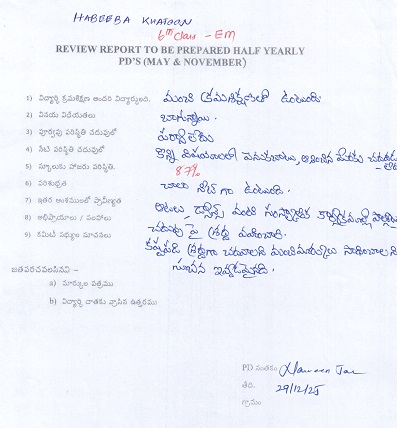 HABEEBA KHATOON
6th Class - EM
REVIEW REPORT TO BE PREPARED HALF YEARLY
PD'S (MAY & NOVEMBER)
1) విద్యార్థి క్రమశిక్షణ అందరి విద్యార్థులంది. మంచి క్రమశిక్షణతో ఉంటుంది
2) వినయ విధేయతలు బాగున్నాయి.
3) పూర్వపు పరిస్థితి చదువులో పర్వాలేదు
4) నేటి పరిస్థితి చదువులో కొన్ని విషయాలలో వెనుకబాటు, ఆశించిన మేరకు చదవడం లేదు
5) స్కూలుకు హాజరు పరిస్థితి. 87%
6) పరిశుభ్రత చాలా నీట్ గా ఉంటుంది.
7) ఇతర అంశములలో ప్రావీణ్యత ఆటలు, డ్యాన్స్ వంటి సాంస్కృతిక
8) అభిప్రాయాలు / సలహాలు చదువు పై శ్రద్ధ వహించాలి.
9) కమిటీ సభ్యుల సూచనలు కష్టపడి శ్రద్ధగా చదవాలని మంచి మార్కులు సాధించాలని
సూచన ఇవ్వడమైనది.
జతపరచవలసినవి -
a) మార్కుల పత్రము
b) విద్యార్థి దాతకు వ్రాసిన ఉత్తరము
PD సంతకం
తేది. 29/12/25
గ్రామం